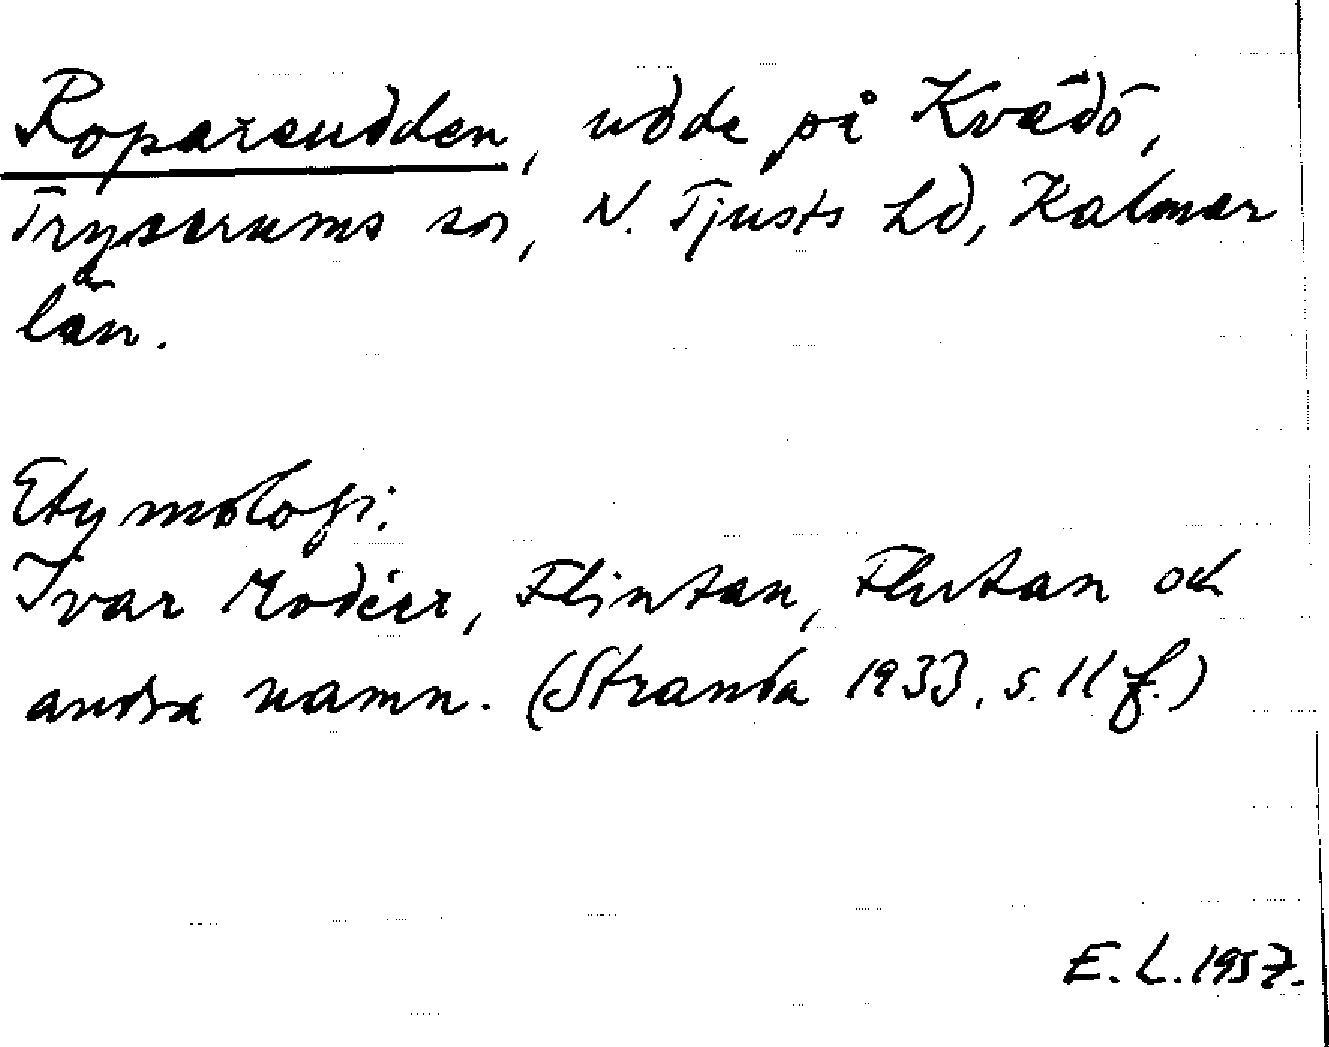 Ropareudden, udde på Kvädö,
Tryserums sn, N. Tjusts hd, Kalmar
län.
Etymologi:
Ivar Modéer, Flintan, Flutan och
andra namn. (Stranda 1933, s. 11 f.)
E. L. 1957.